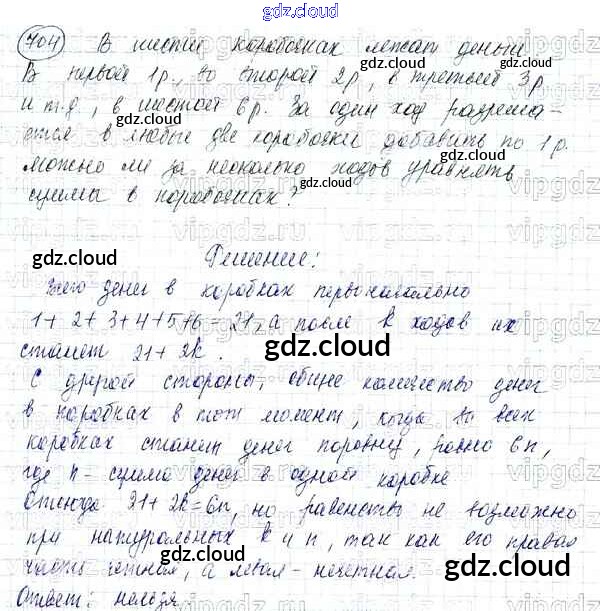 gdz.cloud
704 В шести коробочках лежат деньги.
В первой 1р., во второй 2р, в третьей 3р
и т.д, в шестой 6р. За один ход разреша-
ется в любые две коробочки добавить по 1р.
Можно ли за несколько ходов уравнять
суммы в коробочках?
Решение:
Всего денег в коробках первоначально
1+2+3+4+5+6=21, а после k ходов их
станет 21+2k.
С другой стороны, общее количество денег
в коробках в тот момент, когда во всех
коробках станет денег поровну, равно 6n,
где n - сумма денег в одной коробке
Отсюда 21+2k=6n, но равенство не возможно
при натуральных k и n, так как его правая
часть четная, а левая - нечетная.
Ответ: нельзя